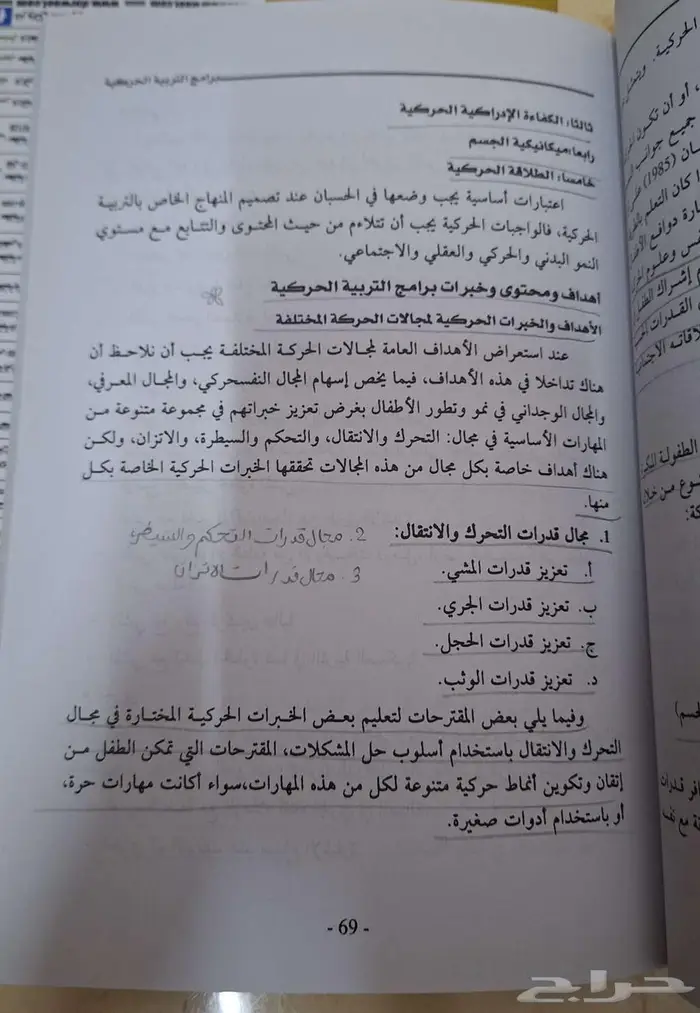 برامج التربية الحركية
ثالثا: الكفاءة الإدراكية الحركية
رابعا:ميكانيكية الجسم
خامسا: الطلاقة الحركية
اعتبارات أساسية يجب وضعها في الحسبان عند تصميم المنهاج الخاص بالتربية
الحركية، فالواجبات الحركية يجب أن تتلاءم من حيث المحتوى والتتابع مع مستوي
النمو البدني والحركي والعقلي والاجتماعي.
أهداف ومحتوى وخبرات برامج التربية الحركية
الأهداف والخبرات الحركية لمجالات الحركة المختلفة
عند استعراض الأهداف العامة لمجالات الحركة المختلفة يجب أن نلاحظ أن
هناك تداخلا في هذه الأهداف، فيما يخص إسهام المجال النفسحركي، والمجال المعرفي،
والمجال الوجداني في نمو وتطور الأطفال بغرض تعزيز خبراتهم في مجموعة متنوعة من
المهارات الأساسية في مجال: التحرك والانتقال، والتحكم والسيطرة، والاتزان، ولكن
هناك أهداف خاصة بكل مجال من هذه المجالات تحققها الخبرات الحركية الخاصة بكل
منها.
1. مجال قدرات التحرك والانتقال: 2. مجال قدرات التحكم والسيطرة
أ. تعزيز قدرات المشي. 3. مجال قدرات الاتزان
ب. تعزيز قدرات الجري.
ج. تعزيز قدرات الحجل.
د. تعزيز قدرات الوثب.
وفيما يلي بعض المقترحات لتعليم بعض الخبرات الحركية المختارة في مجال
التحرك والانتقال باستخدام أسلوب حل المشكلات، المقترحات التي تمكن الطفل من
إتقان وتكوين أنماط حركية متنوعة لكل من هذه المهارات،سواء أكانت مهارات حرة،
أو باستخدام أدوات صغيرة.
- 69 -
حراج